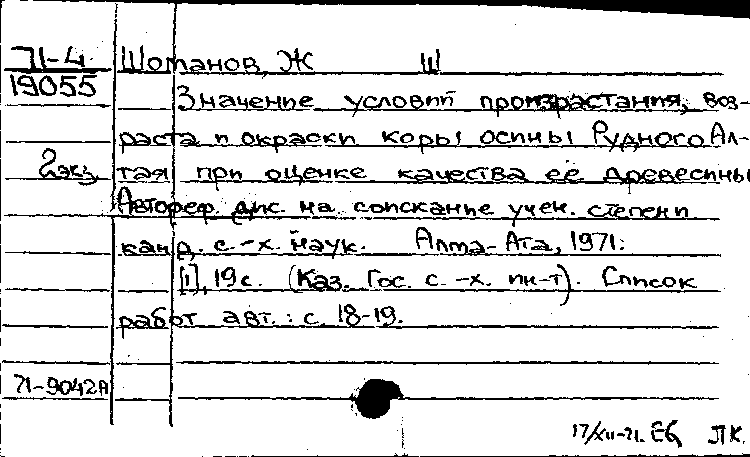 71-4 Шотанов, Ж Ш
19055
Значение условий произрастания, воз-
раста и окраски коры осины Рудного Ал-
2экз. тая при оценке качества ее древесины
Автореф. дис. на соискание учен. степени
канд. с.-х. наук. Алма-Ата, 1971.
[1], 19с. (Каз. Гос. с.-х. ин-т). Список
работ авт.: с. 18-19.
71-9042А
17/XII-71. ПК.